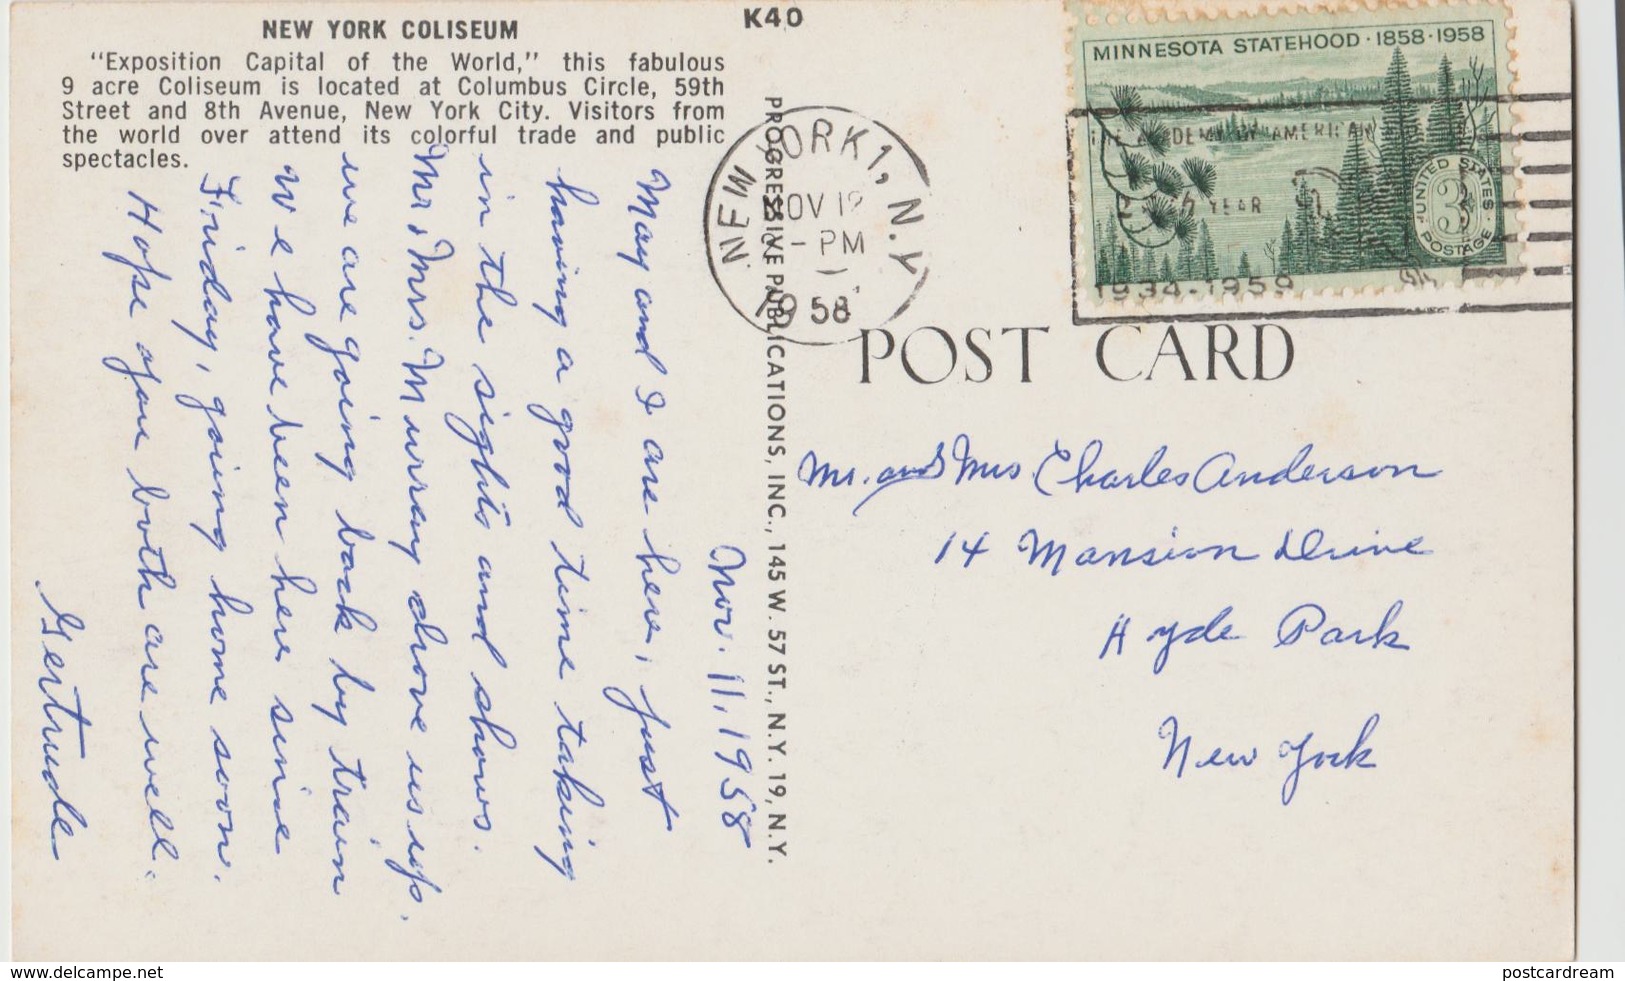 NEW YORK COLISEUM
"Exposition Capital of the World," this fabulous
9 acre Coliseum is located at Columbus Circle, 59th
Street and 8th Avenue, New York City. Visitors from
the world over attend its colorful trade and public
spectacles.
K40
PROGRESSIVE PUBLICATIONS, INC., 145 W. 57 ST., N.Y. 19, N.Y.
MINNESOTA STATEHOOD · 1858 · 1958
UNITED STATES
3¢
POSTAGE
NEW YORK 1, N.Y.
NOV 12
- PM
1958
ACADEMY OF AMERICAN
YEAR
1934-1959
POST CARD
Nov. 11, 1958
May and I are here, just
having a good time taking
in the sights and shows.
Mr & Mrs. Murray drove us up.
we are going back by train
We have been here since
Friday, going home soon.
Hope you both are well.
Gertrude
Mr. and Mrs Charles Anderson
14 Mansion Drive
Hyde Park
New York
www.delcampe.net
postcardream